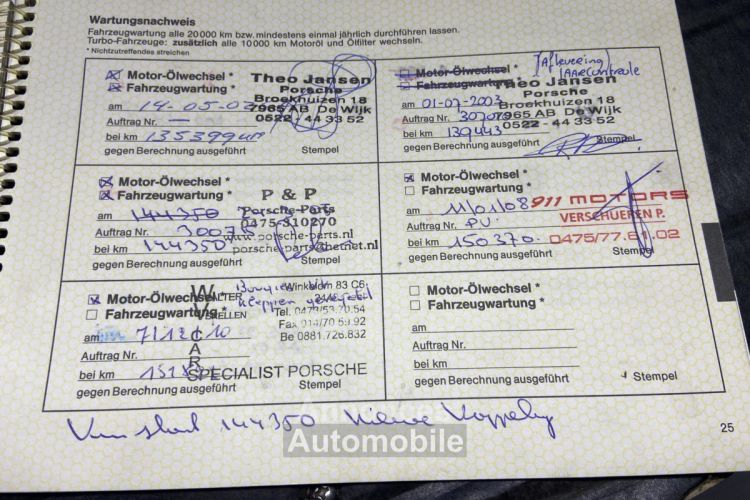 Wartungsnachweis
Fahrzeugwartung alle 20 000 km bzw. mindestens einmal jährlich durchführen lassen.
Turbo-Fahrzeuge: zusätzlich alle 10 000 km Motoröl und Ölfilter wechseln.
* Nichtzutreffendes streichen
Motor-Ölwechsel *
Fahrzeugwartung *
am 14-05-03
Auftrag Nr. —
bei km 135399
gegen Berechnung ausgeführt Stempel
Theo Jansen
Porsche
Broekhuizen 18
7965 AB De Wijk
0522 - 44 33 52
Aflevering
Motor-Ölwechsel *
Fahrzeugwartung *
am 01-07-2003
Auftrag Nr.
bei km 139443
gegen Berechnung ausgeführt Stempel
Theo Jansen
Porsche
Broekhuizen 18
7965 AB De Wijk
0522 - 44 33 52
Motor-Ölwechsel *
Fahrzeugwartung *
am 144350
Auftrag Nr.
bei km 144350
gegen Berechnung ausgeführt Stempel
P & P
Porsche-Parts
0475-310270
www.porsche-parts.nl
Motor-Ölwechsel *
Fahrzeugwartung *
am 11/01/08
Auftrag Nr. P.V.
bei km 150370
gegen Berechnung ausgeführt Stempel
911 MOTORS
VERSCHUEREN P.
0475/77.61.02
Motor-Ölwechsel *
Fahrzeugwartung *
am 7/12/10
Auftrag Nr.
bei km
gegen Berechnung ausgeführt Stempel
Bougies
Winkelom 83 C6
Tel.
Fax
Be 0881.726.832
SPECIALIST PORSCHE
Motor-Ölwechsel *
Fahrzeugwartung *
am
Auftrag Nr.
bei km
gegen Berechnung ausgeführt Stempel
144350 Nieuwe
25
Automobile